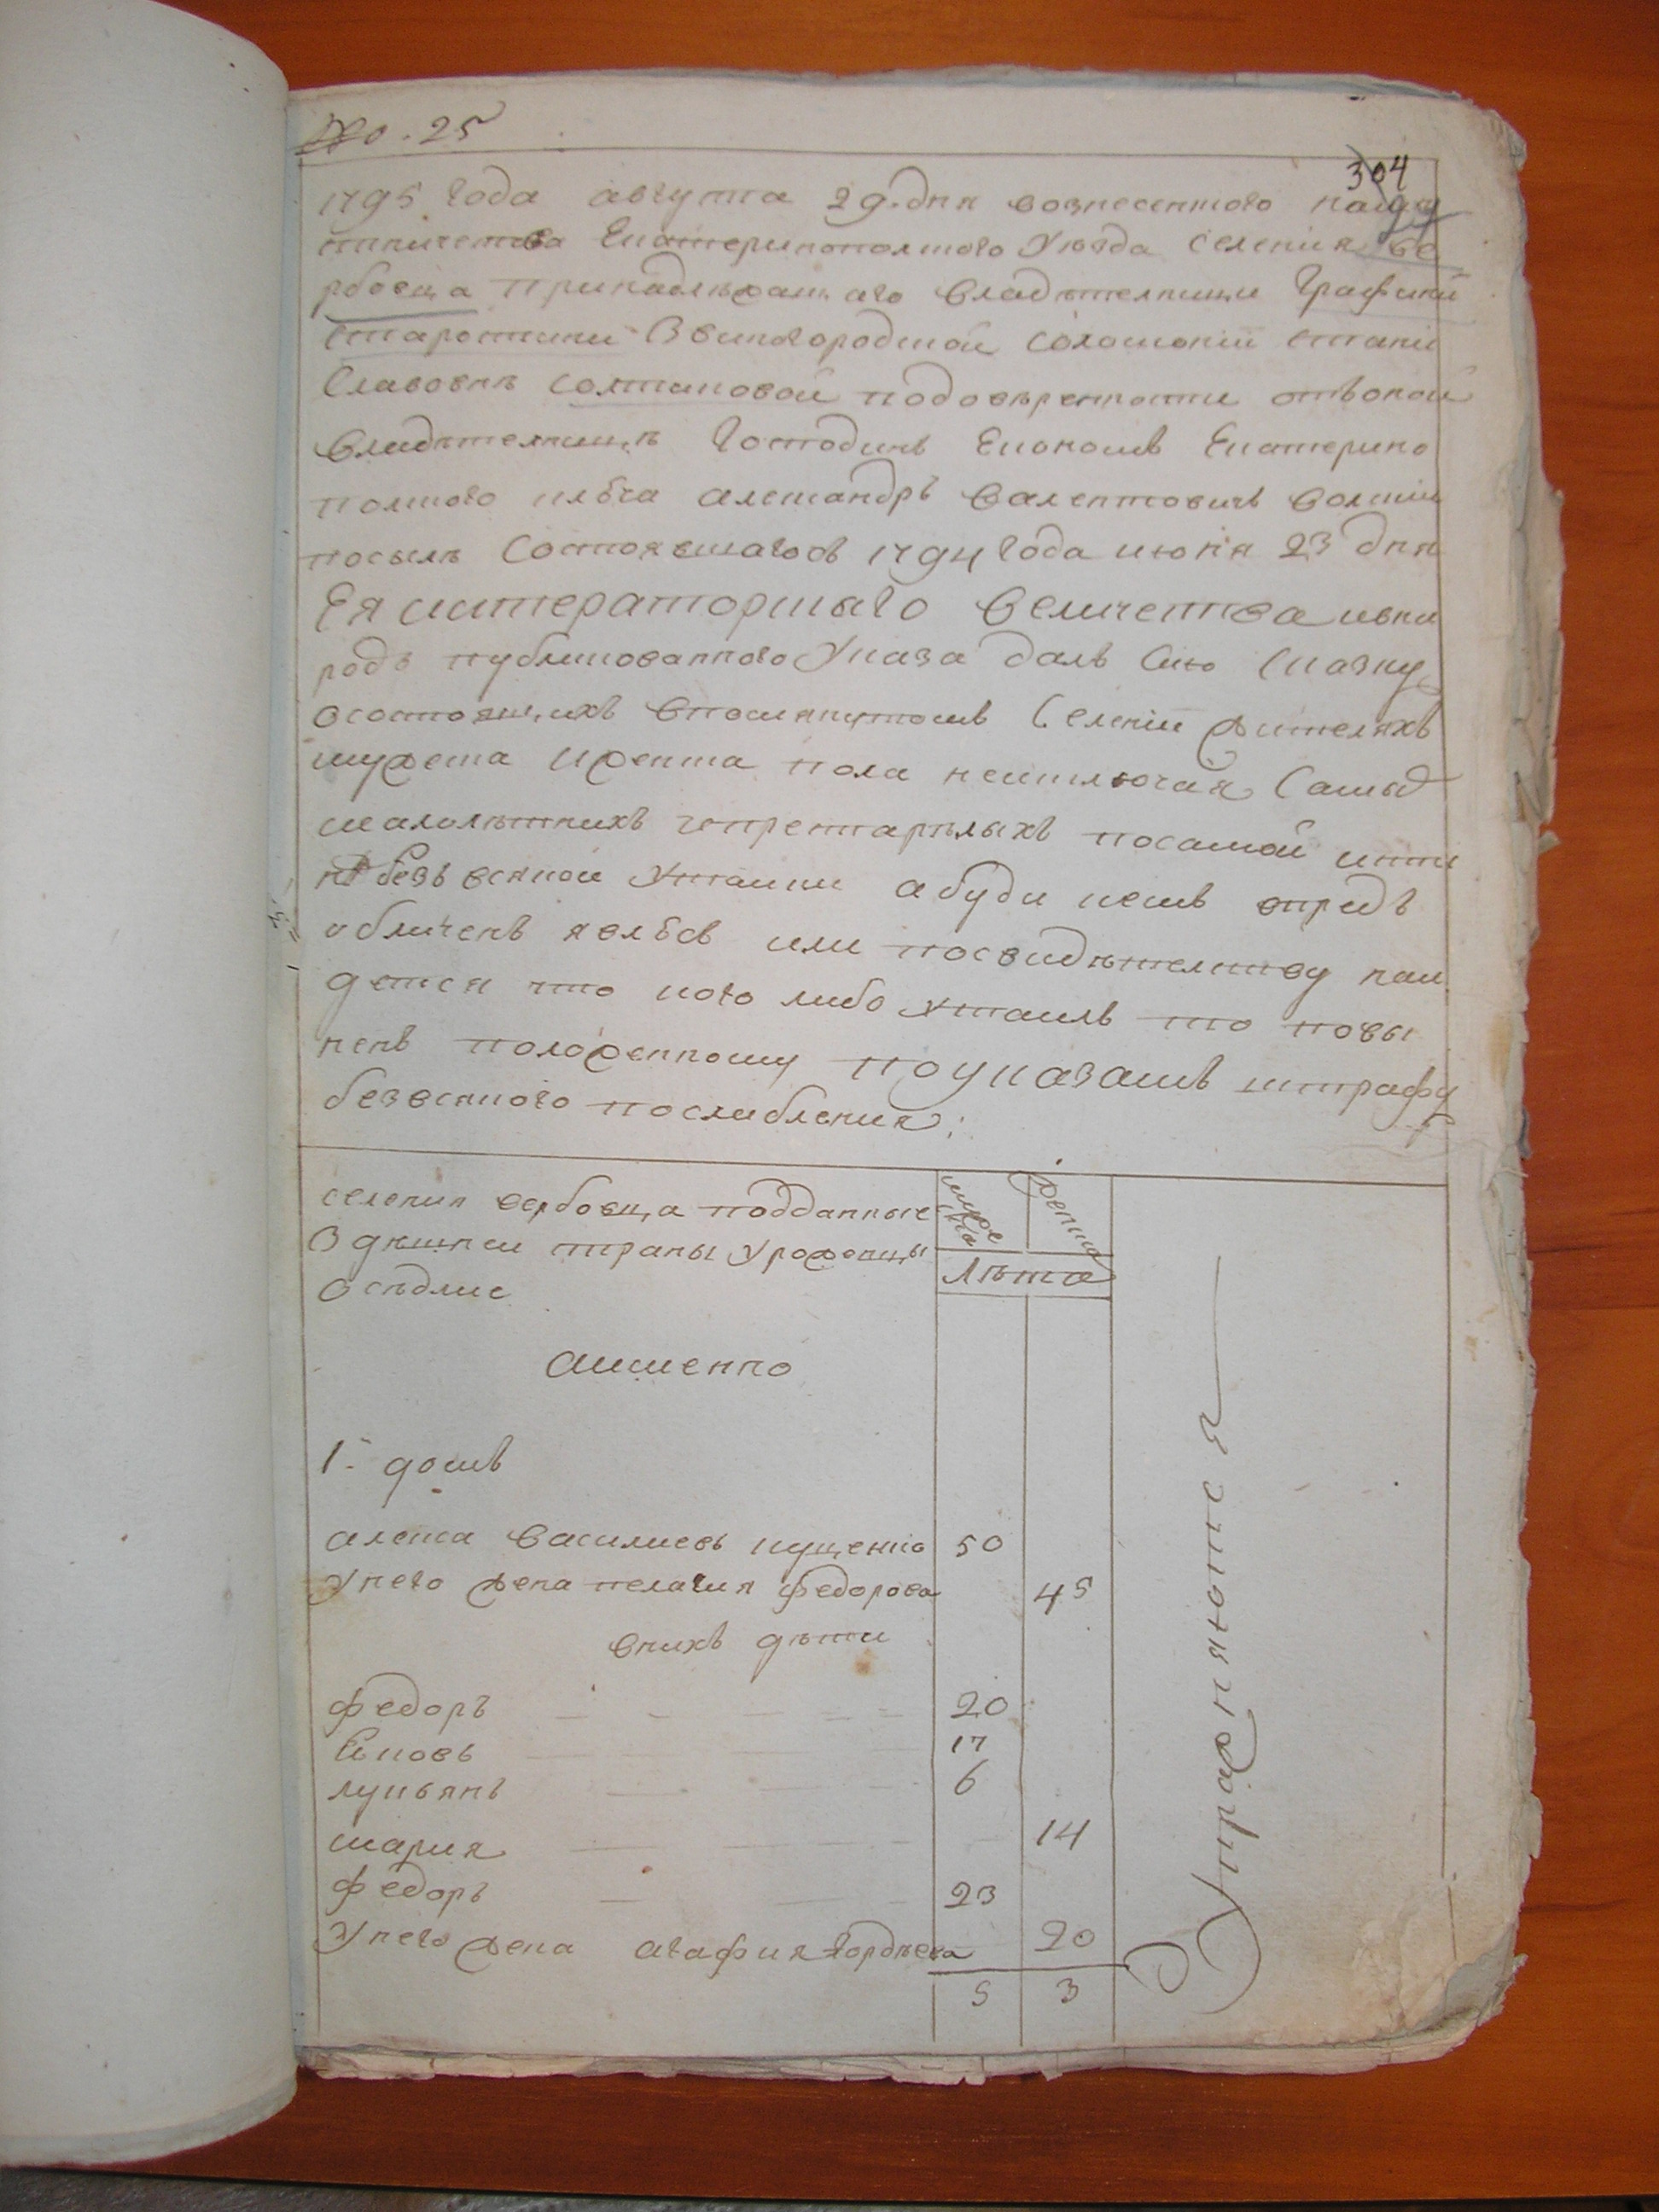 No. 25
304
1795 года августа 29. дня вознесенского намѣс
тничества Екатеринополского уѣзда селения ве
рбовца принадлѣжащаго владѣтелницы Графини
старостини Звиногородской соломонiи стани
славовнѣ солтиковой подовѣренности отъоной
владѣтелницѣ Господинъ Економъ Екатерино
полского ключа александръ валентовичъ волский
посылѣ состоявшагось 1794 года июня 23 дня
Ея императорскаго величества ивна
родъ публикованного указа далъ сию сказку
осостоящихъ впомянутомъ селенiи жителяхъ
мужеска иженска пола неисключая самых
малолѣтнихъ ипрестарѣлыхъ посамой исти
нѣ безъ всякой утайки абуди кемъ впредъ
обличенъ явлюсь или посвидѣтелству най
дется что кого либо утаилъ то повы
ненъ положенному поуказамъ штрафу
безвсякого послабления:
селения вербовца подданные
здѣшней страны уроженцы
осѣдлие
мужеска
женска
лѣта
аименно
1. домъ
алекса василиевъ куценко 50
унего жена пелагия федорова 45
внихъ дѣти
федоръ 20
яковъ 17
лукьянъ 6
мария 14
федоръ 23
унего жена агафия гордѣева 20
5 3
упражняются